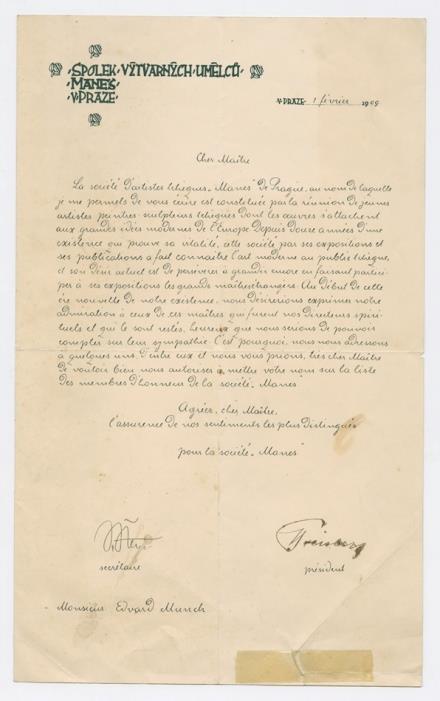 SPOLEK VÝTVARNÝCH UMĚLCŮ
MANES
V PRAZE
V PRAZE 1 février 1909
Cher Maître
La société d'artistes tchèques „Manes" de Prague, au nom de laquelle
je me permets de vous écrire est constituée par la réunion de jeunes
artistes peintres-sculpteurs tchèques dont les œuvres s'attachent
aux grandes idées modernes de l'Europe. Depuis douze années d'une
existence qui prouve sa vitalité, cette société par ses expositions et
ses publications a fait connaître l'art moderne au public tchèque,
et son désir actuel est de persévérer à grandir encore en faisant partici-
per à ses expositions les grands maîtres étrangers. Au début de cette
ère nouvelle de notre existence, nous désirerions exprimer notre
admiration à ceux de ces maîtres qui furent nos directeurs spiri-
tuels et qui le sont restés, heureux que nous serions de pouvoir
compter sur leur sympathie. C'est pourquoi, nous nous adressons
à quelques uns d'entre eux et nous vous prions, très cher Maître
de vouloir bien nous autoriser à mettre votre nom sur la liste
des membres d'honneur de la société „Manes"
Agréez, cher Maître,
l'assurence de nos sentiments les plus distingués
pour la société „Manes"
secrétaire
président
Monsieur Edvard Munch